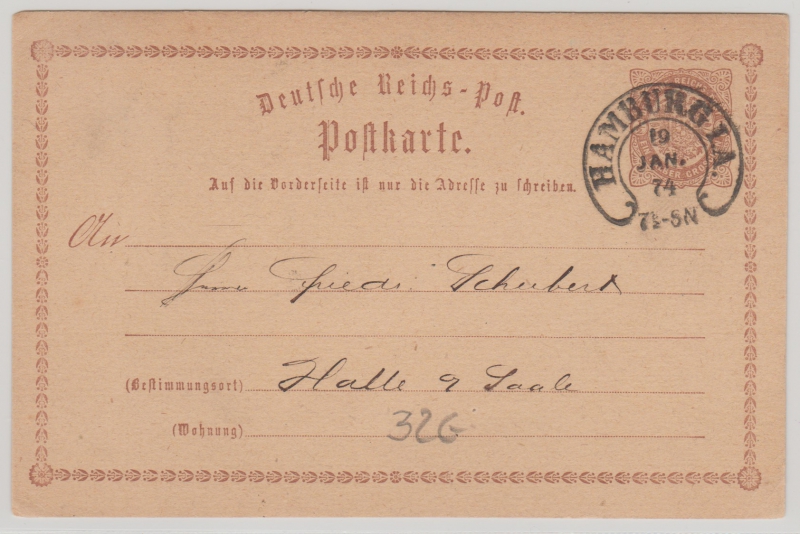 Deutsche Reichs-Post.
Postkarte.
Auf die Vorderseite ist nur die Adresse zu schreiben.
HAMBURG I.A.
19
JAN.
74
An
Friedr. Schubert
(Bestimmungsort) Halle a Saale
(Wohnung)
326